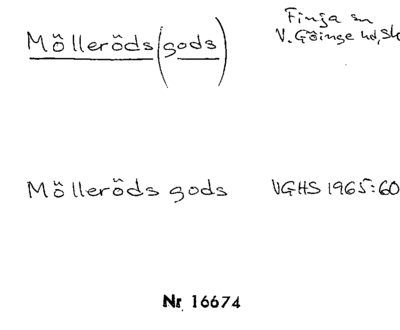 Mölleröds (gods)
Finja sn
V. Göinge hd, Sk
Mölleröds gods VGHS 1965:60
Nr 16674